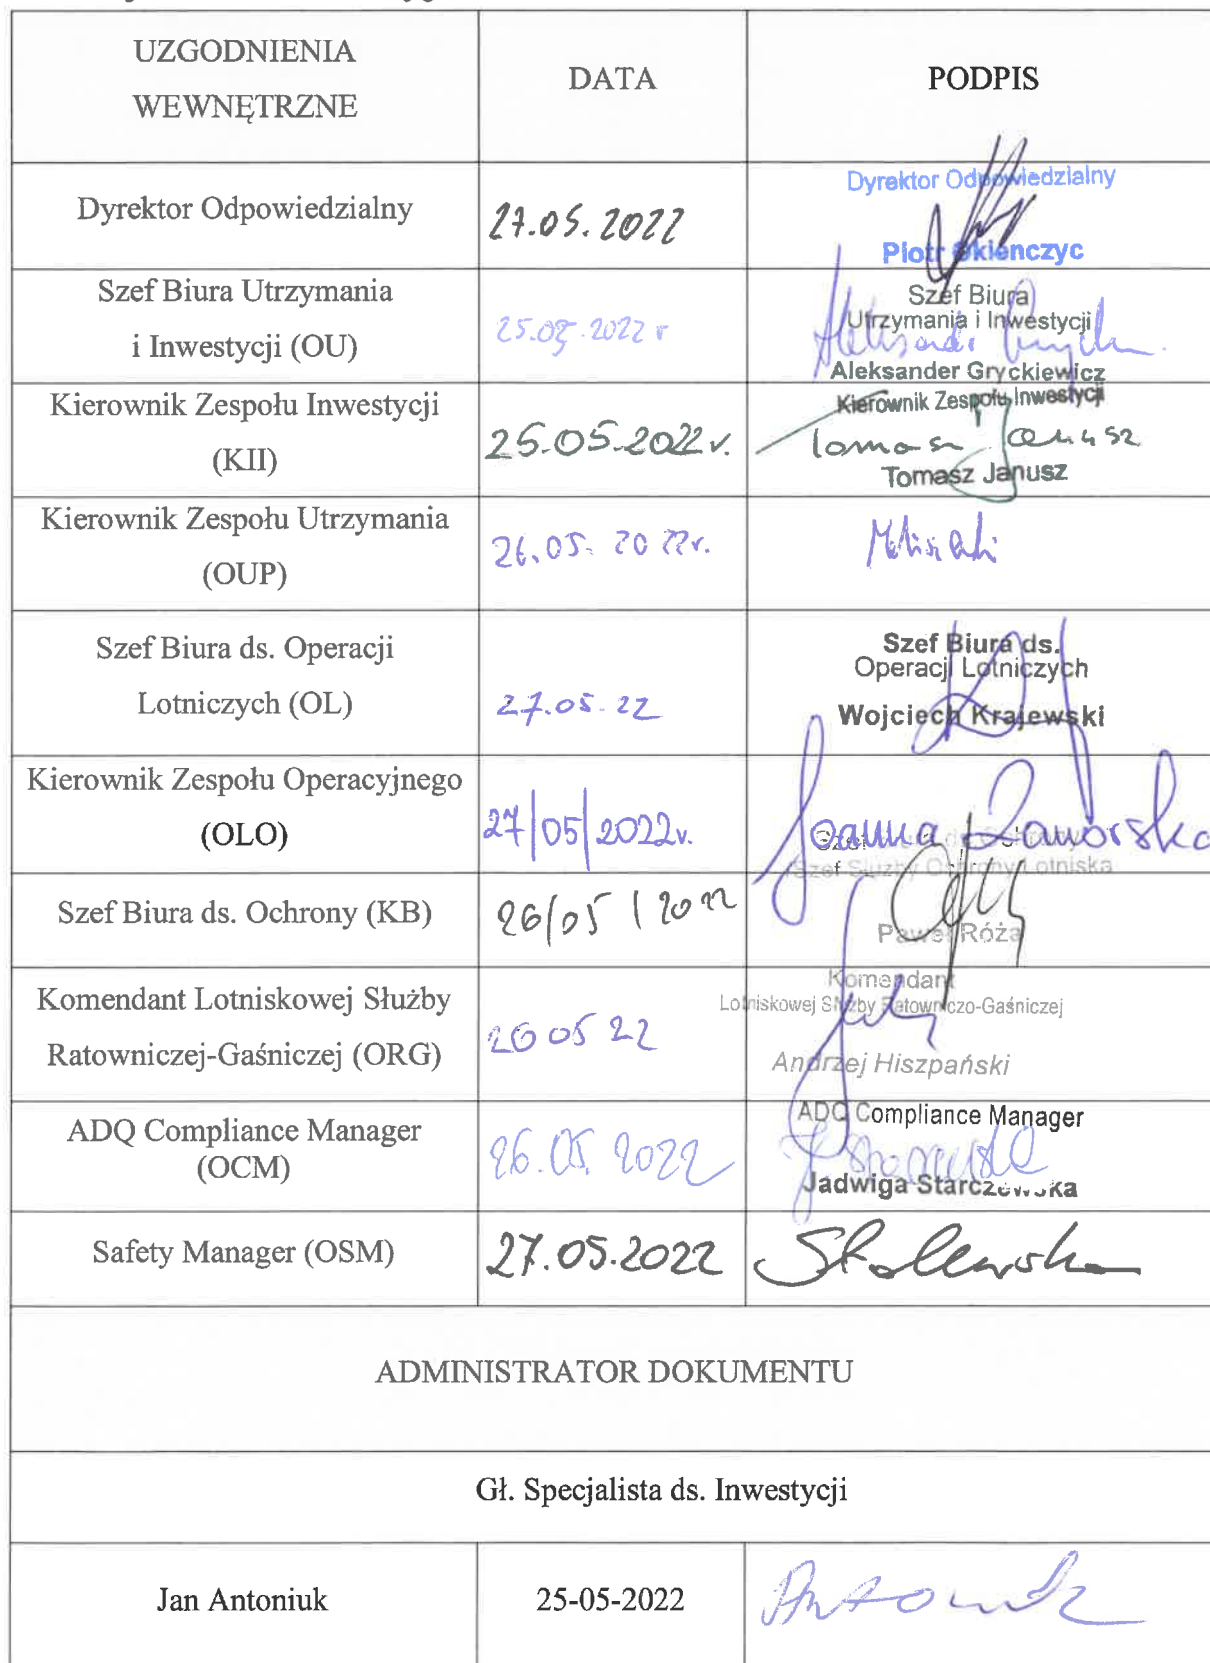 UZGODNIENIA
WEWNĘTRZNE
DATA
PODPIS
Dyrektor Odpowiedzialny
27.05.2022
Dyrektor Odpowiedzialny
Piotr
Szef Biura Utrzymania
i Inwestycji (OU)
25.05.2022 r
Szef Biura
Utrzymania i Inwestycji
Aleksander Gryckiewicz
Kierownik Zespołu Inwestycji
(KII)
25.05.2022 r.
Kierownik Zespołu Inwestycji
Tomasz Janusz
Tomasz Janusz
Kierownik Zespołu Utrzymania
(OUP)
26.05.2022r.
Szef Biura ds. Operacji
Lotniczych (OL)
27.05.22
Szef Biura ds.
Operacji Lotniczych
Wojciech Krajewski
Kierownik Zespołu Operacyjnego
(OLO)
27/05/2022r.
Joanna Zaworska
Szef Biura ds Ochrony
Szef Służby Ochrony Lotniska
Szef Biura ds. Ochrony (KB)
26/05/2022
Paweł Róża
Komendant Lotniskowej Służby
Ratowniczej-Gaśniczej (ORG)
26 05 22
Komendant
Lotniskowej Służby Ratowniczo-Gaśniczej
Andrzej Hiszpański
ADQ Compliance Manager
(OCM)
26.05.2022
ADQ Compliance Manager
Jadwiga Starczewska
Safety Manager (OSM)
27.05.2022
ADMINISTRATOR DOKUMENTU
Gł. Specjalista ds. Inwestycji
Jan Antoniuk
25-05-2022